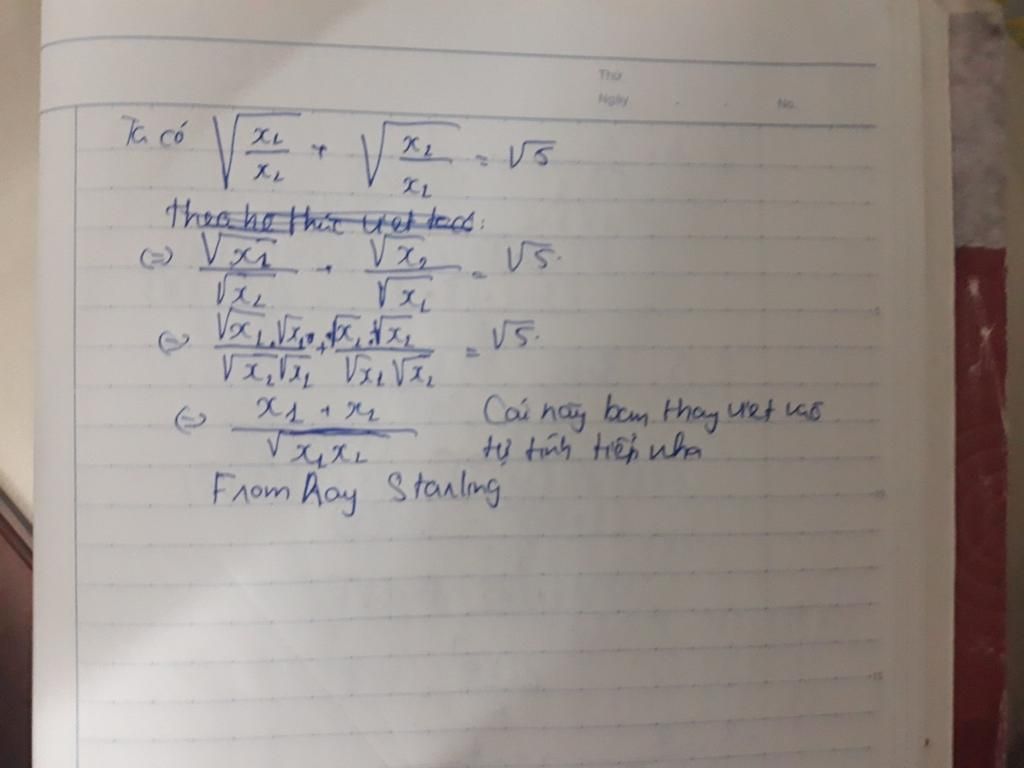 Thứ
Ngày . . No.
Ta có √(x₁/x₂) + √(x₂/x₁) = √5
theo hệ thức viet ta có:
(=) √x₁/√x₂ + √x₂/√x₁ = √5.
(=) √x₁.√x₁/√x₂√x₁ + √x₂.√x₂/√x₁√x₂ = √5.
(=) x1 + x₂/√x₁x₂ Cái này bạn thay viet vào
tự tính tiếp nha
From Ray Starling